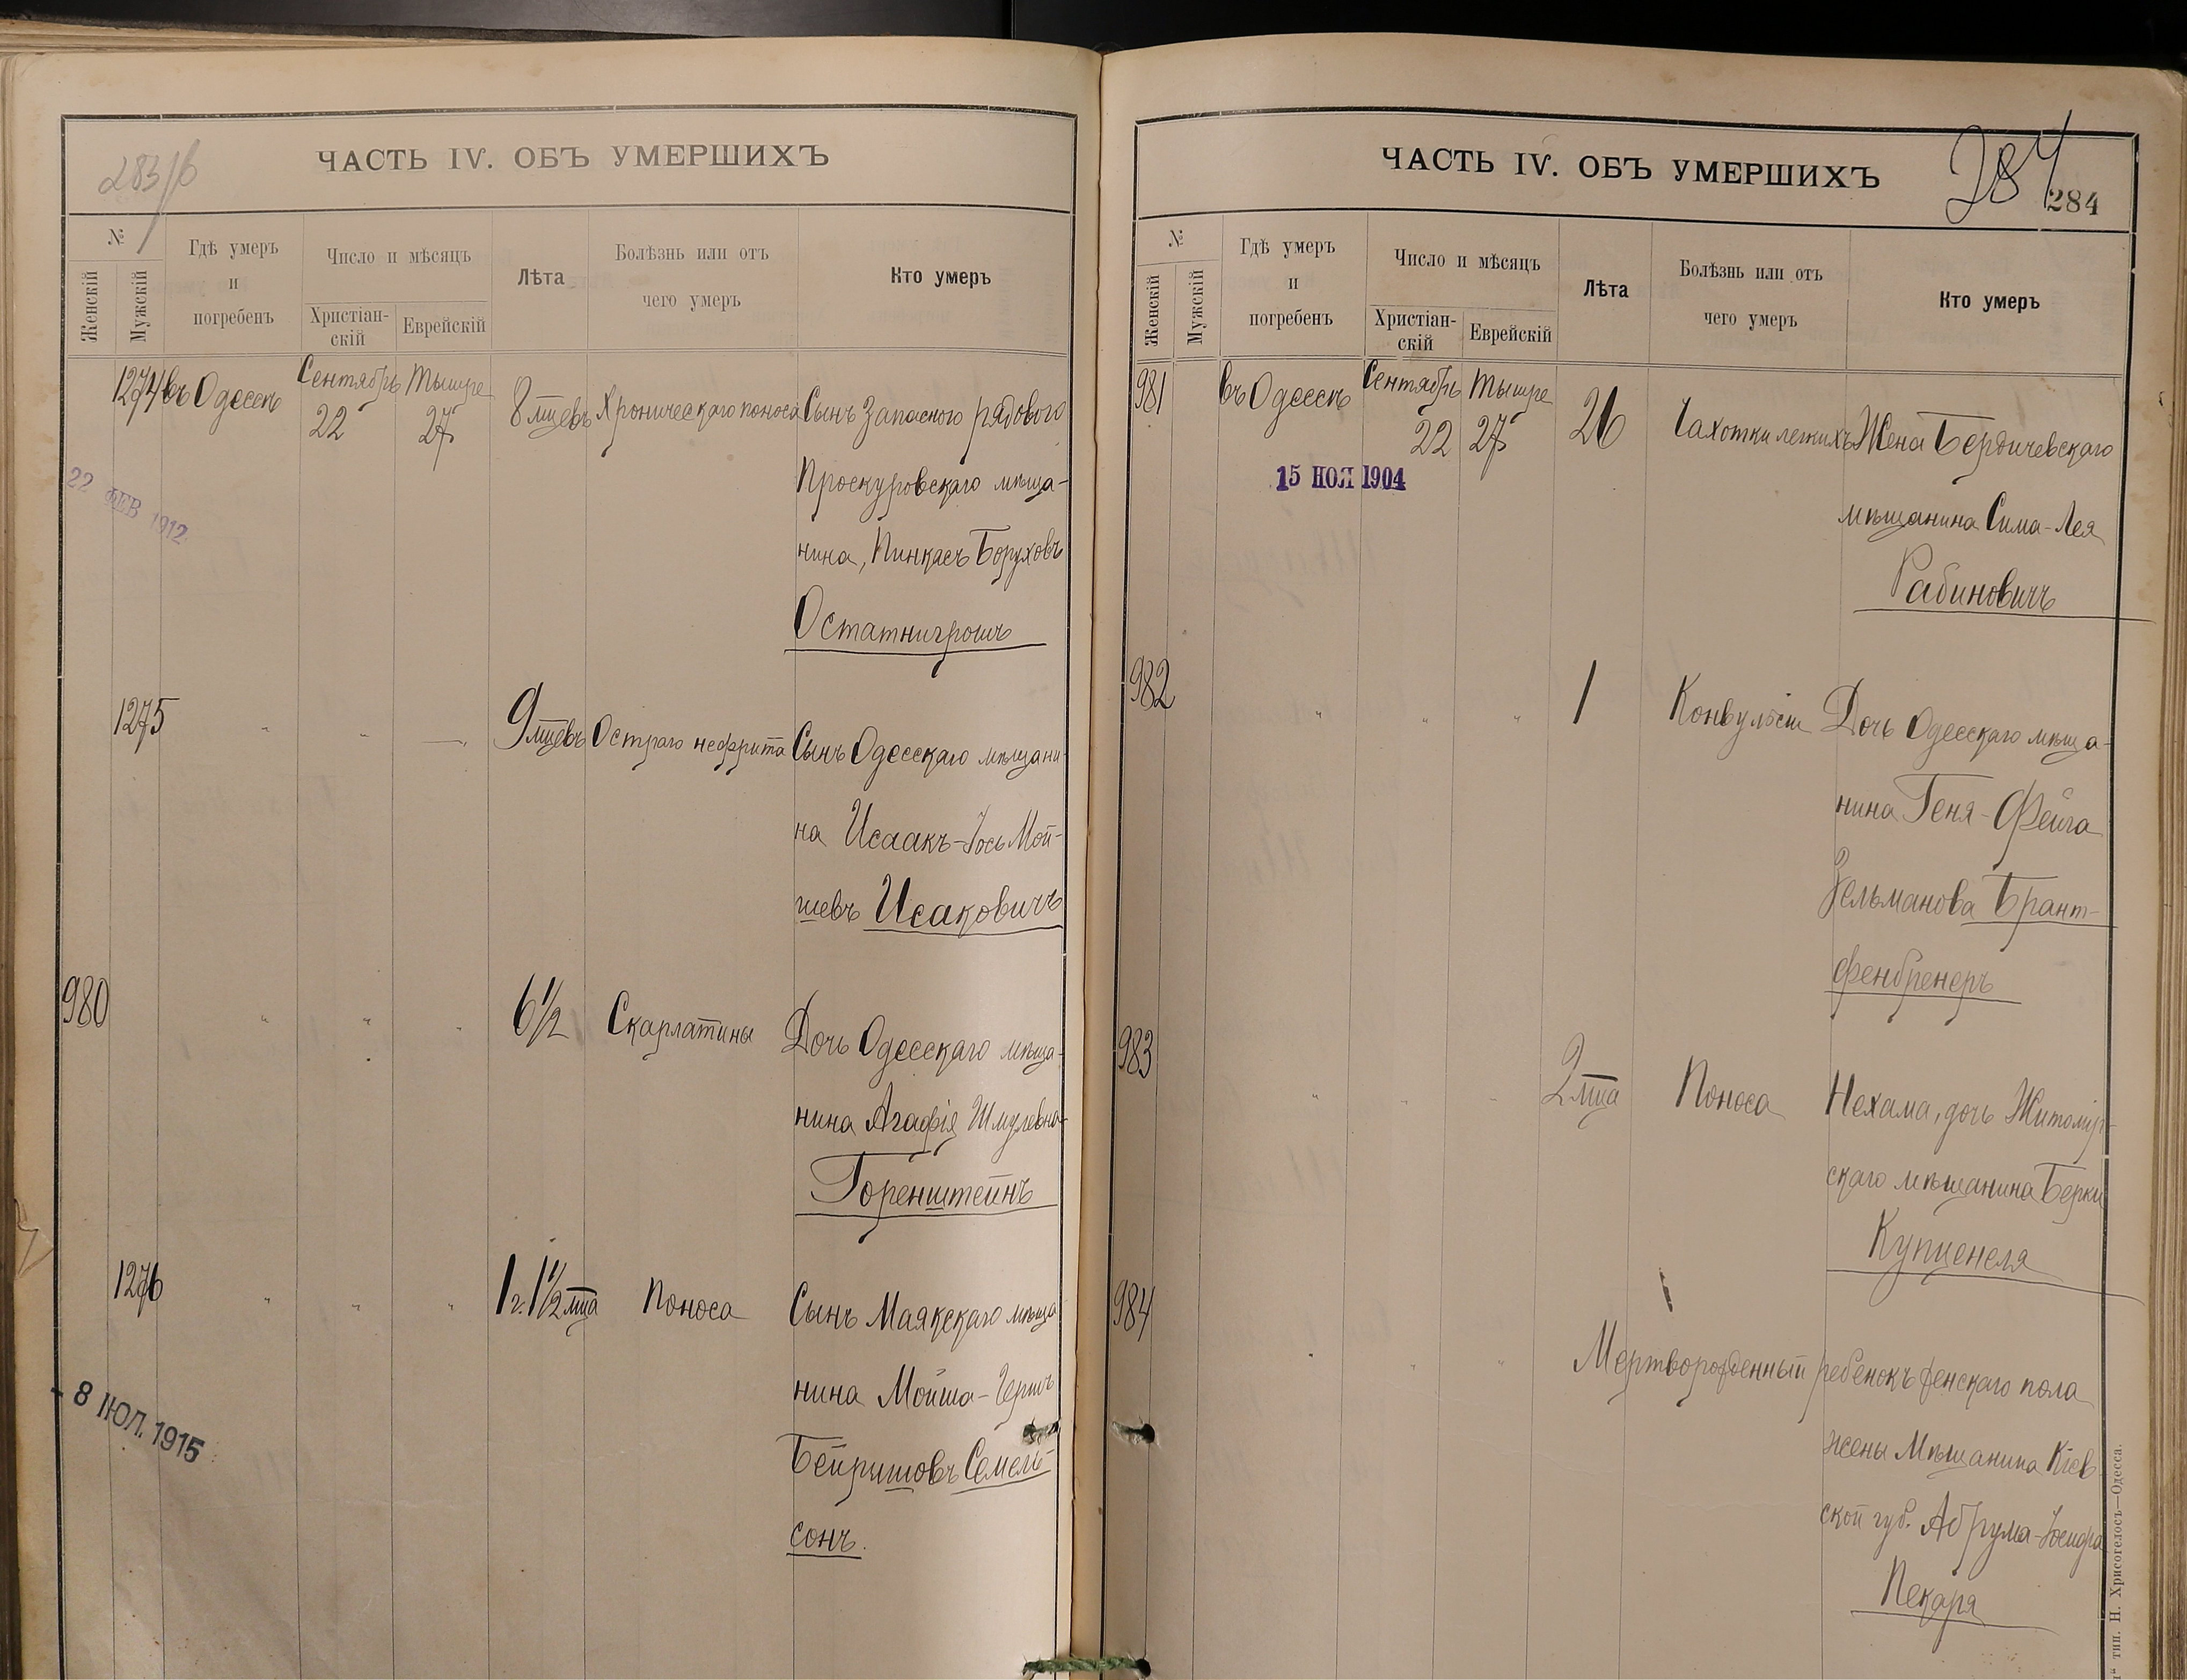 283/б
ЧАСТЬ IV. ОБЪ УМЕРШИХЪ
№
Женскій
Мужскій
Гдѣ умеръ
и
погребенъ
Число и мѣсяцъ
Христіан-
скій
Еврейскій
Лѣта
Болѣзнь или отъ
чего умеръ
Кто умеръ
1274 въ Одессѣ Сентябрь 22 Тышре 27 8 мцевъ Хроническаго поноса Сынъ запасного рядового
Проскуровскаго мѣща-
нина, Пинкасъ Боруховъ
Остатнигрошъ
22 ФЕВ 1912
1275 " " — 9 мцевъ Остраго нефрита Сынъ Одесскаго мѣщани-
на Исаакъ-Іось Мой-
шевъ Исаковичъ
980 " " " 6 1/2 Скарлатины Дочь Одесскаго мѣща-
нина Агафія Шмулевна
Горенштейнъ
1276 " " " 1 г. 1 1/2 мца Поноса Сынъ Маякскаго мѣща
нина Мойша-Гершъ
Бейришовъ Семель-
сонъ.
- 8 ІЮЛ. 1915
ЧАСТЬ IV. ОБЪ УМЕРШИХЪ
284
284
№
Женскій
Мужскій
Гдѣ умеръ
и
погребенъ
Число и мѣсяцъ
Христіан-
скій
Еврейскій
Лѣта
Болѣзнь или отъ
чего умеръ
Кто умеръ
981 въ Одессѣ Сентябрь 22 Тышре 27 26 Чахотки легкихъ Жена Бердичевскаго
15 НОЯ 1904
мѣщанина Сима-Лея
Рабиновичъ
982 " " " 1 Конвульсіи Дочь Одесскаго мѣща-
нина Геня-Фейга
Зельманова Брант-
фенбренеръ
983 " " " 2 мца Поноса Нехама, дочь Житомір-
скаго мѣщанина Берки
Купценеля
984 " " " Мертворожденный ребенокъ женскаго пола
жены Мѣщанина Кіев-
ской губ. Абрума-Іосифа
Пекаря
тип. Н. Хрисогелосъ—Одесса.